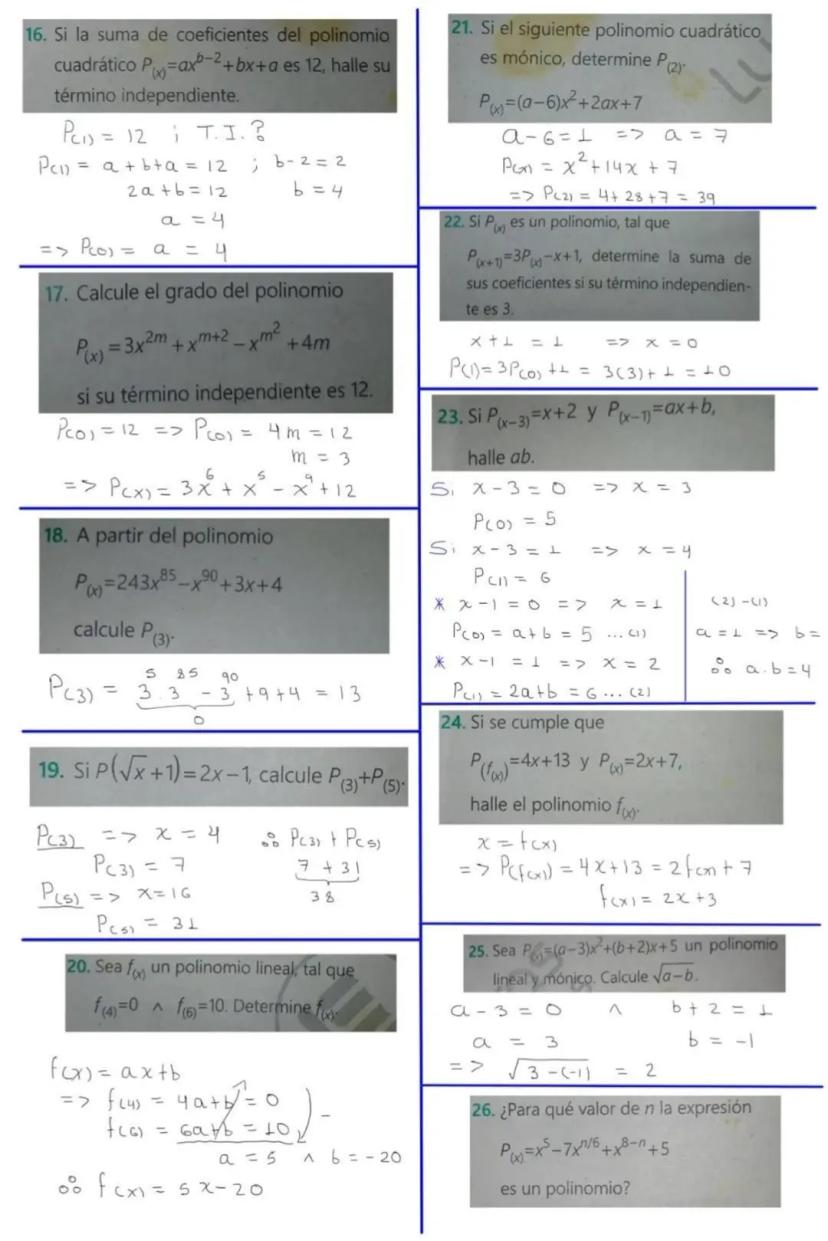 16. Si la suma de coeficientes del polinomio
cuadrático P(x)=ax^(b-2)+bx+a es 12, halle su
término independiente.
P(1) = 12 ; T.I.?
P(1) = a+b+a = 12 ; b-2 = 2
2a+b = 12 b = 4
a = 4
=> P(0) = a = 4
17. Calcule el grado del polinomio
P(x) = 3x^(2m) + x^(m+2) - x^(m²) + 4m
si su término independiente es 12.
P(0) = 12 => P(0) = 4m = 12
m = 3
=> P(x) = 3x⁶ + x⁵ - x⁹ + 12
18. A partir del polinomio
P(x)=243x⁸⁵-x⁹⁰+3x+4
calcule P(3).
P(3) = 3⁵.3⁸⁵ - 3⁹⁰ + 9 + 4 = 13
0
19. Si P(√x+1)=2x-1, calcule P(3)+P(5).
P(3) => x = 4 ∴ P(3) + P(5)
P(3) = 7 7 + 31
P(5) => x = 16 38
P(5) = 31
20. Sea f(x) un polinomio lineal, tal que
f(4)=0 ∧ f(6)=10. Determine f(x).
f(x) = ax+b
=> f(4) = 4a+b = 0
f(6) = 6a+b = 10 -
a = 5 ∧ b = -20
∴ f(x) = 5x-20
21. Si el siguiente polinomio cuadrático
es mónico, determine P(2).
P(x)=(a-6)x²+2ax+7
a-6 = 1 => a = 7
P(x) = x²+14x+7
=> P(2) = 4+28+7 = 39
22. Si P(x) es un polinomio, tal que
P(x+1)=3P(x)-x+1, determine la suma de
sus coeficientes si su término independien-
te es 3.
x+1 = 1 => x = 0
P(1) = 3P(0)+1 = 3(3)+1 = 10
23. Si P(x-3)=x+2 y P(x-1)=ax+b,
halle ab.
Si x-3 = 0 => x = 3
P(0) = 5
Si x-3 = 1 => x = 4
P(1) = 6
* x-1 = 0 => x = 1 (2)-(1)
P(0) = a+b = 5 ...(1) a = 1 => b =
* x-1 = 1 => x = 2 ∴ a.b = 4
P(1) = 2a+b = 6 ...(2)
24. Si se cumple que
P(f(x))=4x+13 y P(x)=2x+7,
halle el polinomio f(x).
x = f(x)
=> P(f(x)) = 4x+13 = 2f(x)+7
f(x) = 2x+3
25. Sea P(x)=(a-3)x²+(b+2)x+5 un polinomio
lineal y mónico. Calcule √(a-b).
a-3 = 0 ∧ b+2 = 1
a = 3 b = -1
=> √(3-(-1)) = 2
26. ¿Para qué valor de n la expresión
P(x)=x⁵-7x^(n/6)+x^(8-n)+5
es un polinomio?